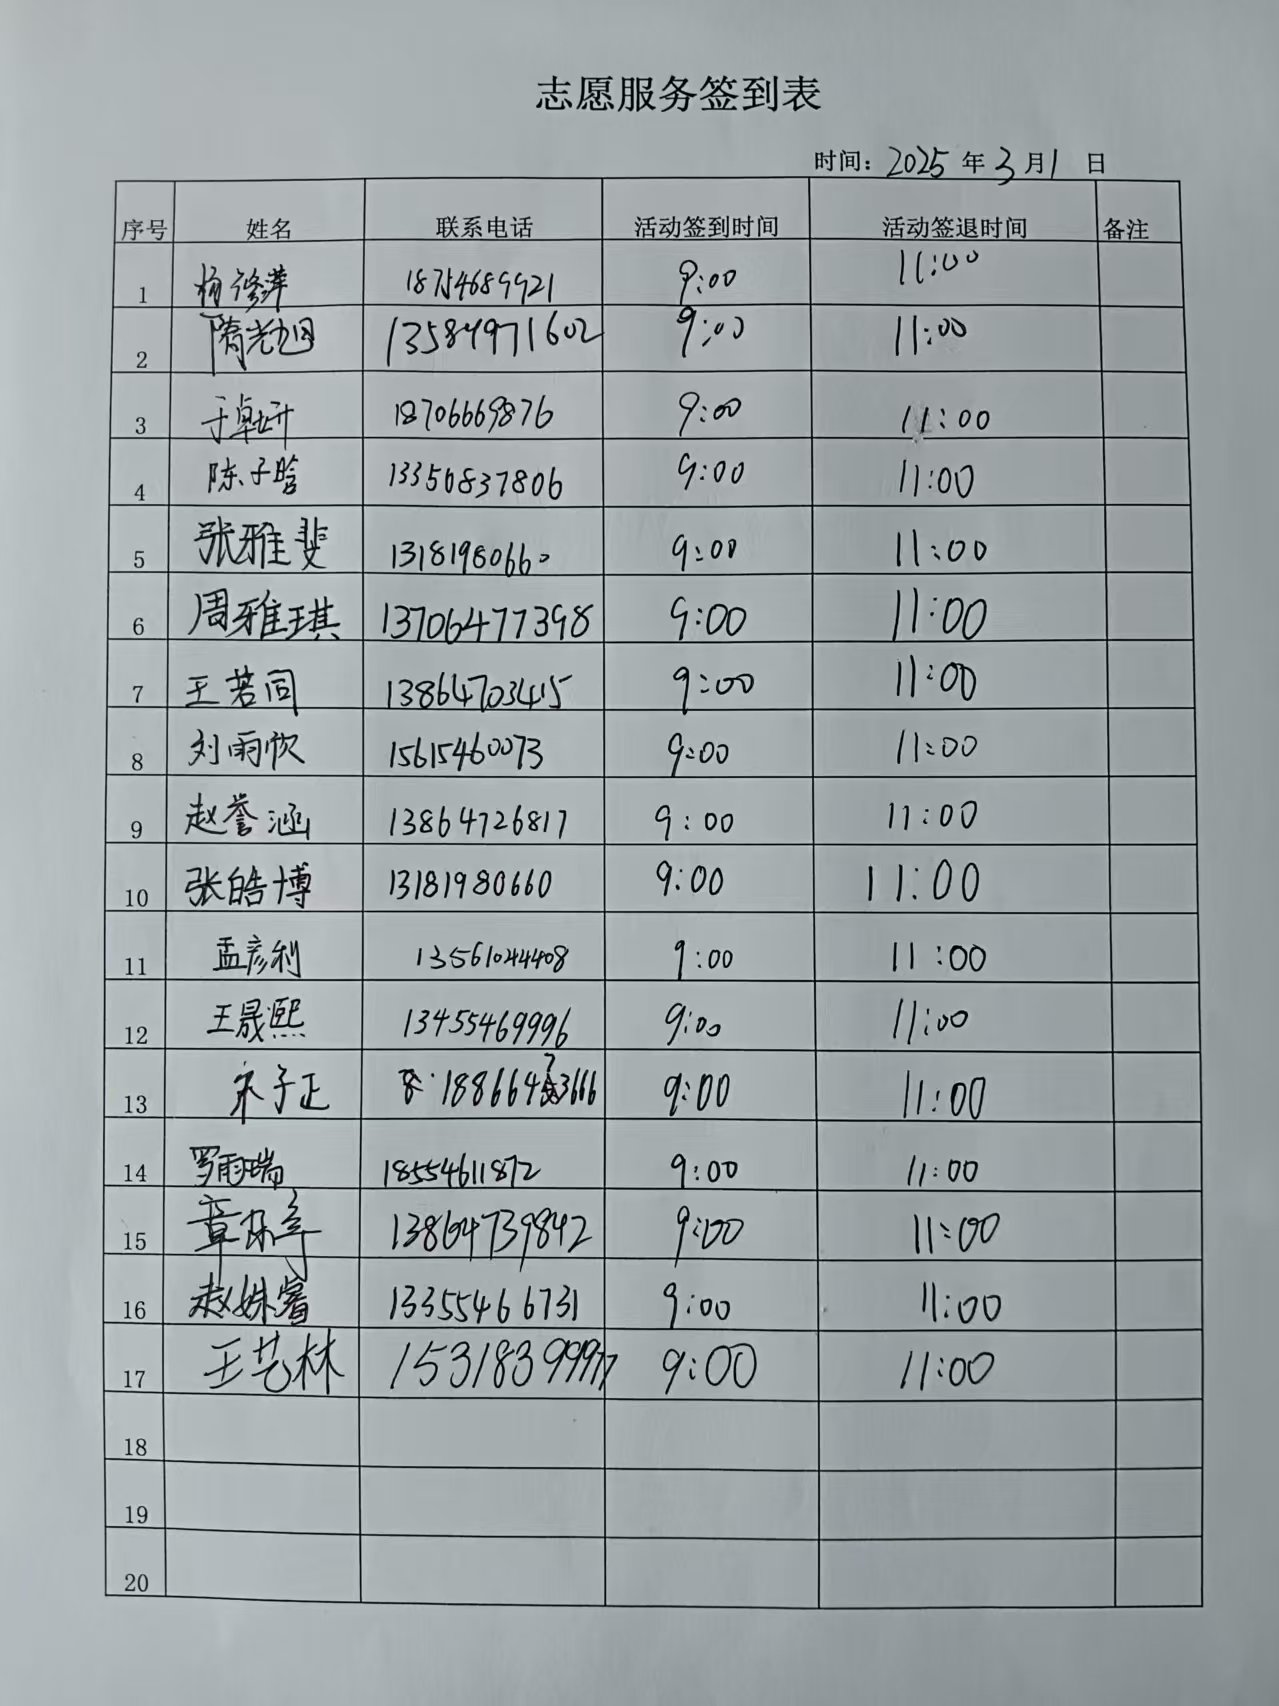 志愿服务签到表
时间：2025年3月1日
序号 姓名 联系电话 活动签到时间 活动签退时间 备注
1 杨修萍 18754689921 9:00 11:00
2 隋光旭 13584971602 9:00 11:00
3 于卓妍 18706669876 9:00 11:00
4 陈子晗 13356837806 9:00 11:00
5 张雅斐 13181980660 9:00 11:00
6 周雅琪 13706477398 9:00 11:00
7 王若同 13864703415 9:00 11:00
8 刘雨忺 15615460073 9:00 11:00
9 赵誉涵 13864726817 9:00 11:00
10 张皓博 13181980660 9:00 11:00
11 孟彦利 13561044408 9:00 11:00
12 王晟熙 13455469996 9:00 11:00
13 子正 9:00 11:00
14 罗雨瑞 18554611872 9:00 11:00
15 章 13864739842 9:00 11:00
16 赵姝睿 13355466731 9:00 11:00
17 王艺林 9:00 11:00
18
19
20